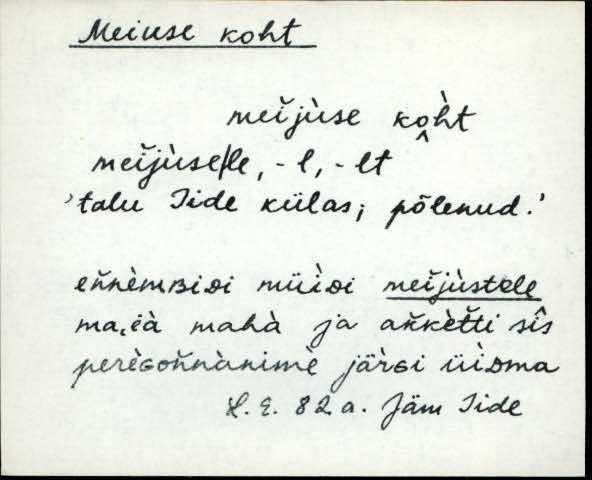 Meiuse koht
meĭjùse kòht
meĭjùsele, -l, -lt
'talu Iide külas; põlenud.'
eňnèmʙiᴅi müìᴅi meĭjùstele
ma,èà mahà ja aňkèťti sîs
perèɢoňnànimè järɢi üìᴅma
H. E. 82 a. Jäm Iide